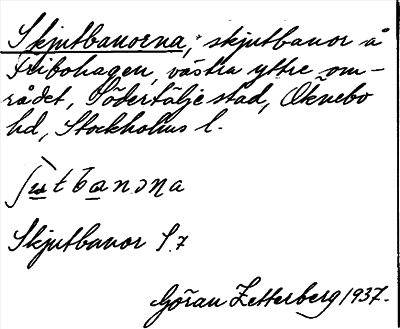 Skjutbanorna, skjutbanor å
Fribohagen, västra yttre om-
rådet, Södertälje stad, Öknebo
hd, Stockholms l.
Skjutbanor S.7
Göran Zetterberg 1937.